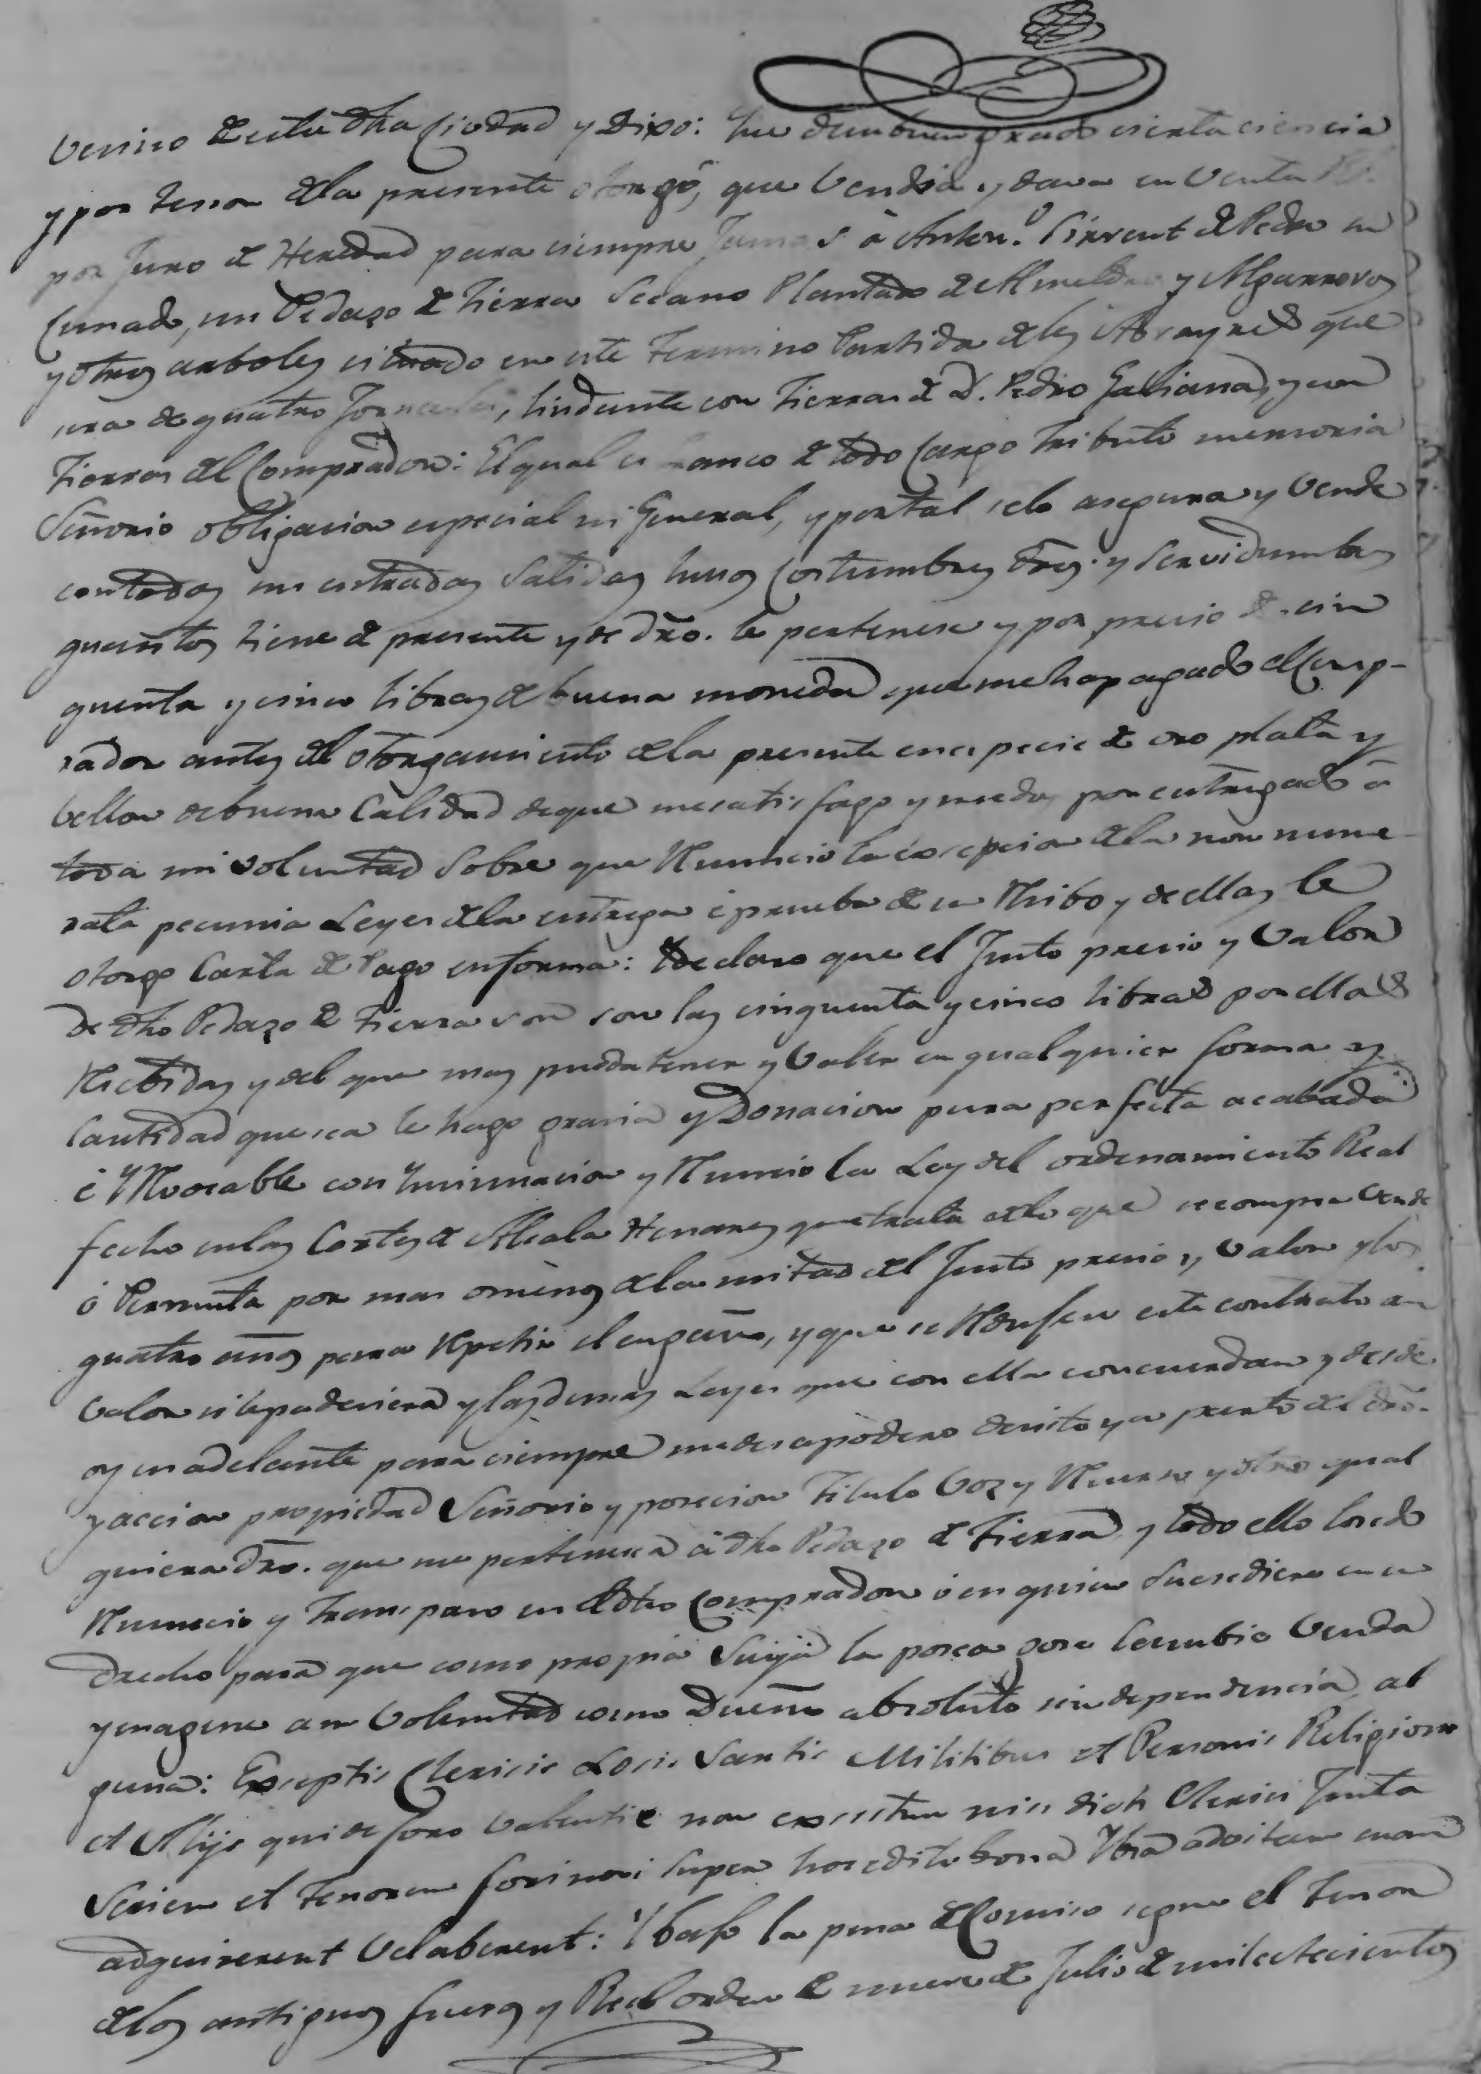 Vecino de esta dha Ciudad y Dixo: Que de su buen grado cierta ciencia
y por tenor de la presente otorgó, que Vendia y dava en Venta Rl.
por Juro de Heredad para siempre Jamas à Anton.º Sirvent de Pedro su
Cuñado, un Pedazo de tierra Secano Plantado de Almendros y Algarrovos
y otros arboles situado en este Termino Partida de los Abrayres que
sera de quatro Jornales, lindante con Tierras de D. Pedro Galiana, y con
Tierras del Comprador: El qual es franco de todo Cargo tributo memoria
Señorio obligacion especial ni General, y por tal se lo asegura y Vende
con todas sus entradas Salidas husos Costumbres dros. y Servidumbres
quantos tiene de presente y de dro. le pertenese y por precio de cin
quenta y cinco libras de buena moneda que me ha pagado el Comp-
rador antes del otorgamiento de la presente en especie de oro plata y
vellon de buena Calidad de que me satisfago y me doy por entregado á
toda mi voluntad sobre que Renuncio la exsepcion de la non nume
rata pecunia Leyes de la entrega é prueba de su Resibo y de ellas le
otorgo Carta de Pago en forma: Declaro que el Justo precio y Valor
de dho Pedazo de tierra son son las cinquenta y cinco libras por ellas
Resibidas y del que mas pueda tener y Valer en qualquier forma y
Cantidad que sea le hago gracia y Donacion pura perfecta acabada
é Yrrvocable con Ynsinuacion y Renuncio la Ley del ordenamiento Real
fecho en las Cortes de Alcala Henares que trata de lo que se compra Vende
ó Permuta por mas ó menos de la mitad del Justo precio y Valor y los
quatro años para Repetir el engaño, y que se Redusca este contrato a su
Valor si le padeciera y las demas Leyes que con ella concuerdan y desde
oy en adelante para siempre me desapodero desisto y a parto del dro.
y accion propiedad Señorio y posecion Titulo Voz y Recurso y otro qual
quiera dro. que me pertenesca á dho Pedazo de Tierra, y todo ello lo cedo
Renuncio y Transpaso en el dho Comprador ó en quien Susediere en su
drecho para que como propia Suya la posea gose Cambie Venda
y enagene a su Voluntad como Dueño absoluto sin dependencia al
guna: Exseptis Clericis Locis Santis Militibus et Personis Religiosis
et Alijs qui de foro Valentie non exsistun nisi dicti Clerici Justa
Seriem et Tenorem fori novi super hoc editi bona Ybsa ad vitam suam
adquirerent Velaberent: Y bajo la pena de Comiso segun el tenor
de los antiguos fueros y Real orden de nueve de Julio de mil setecientos